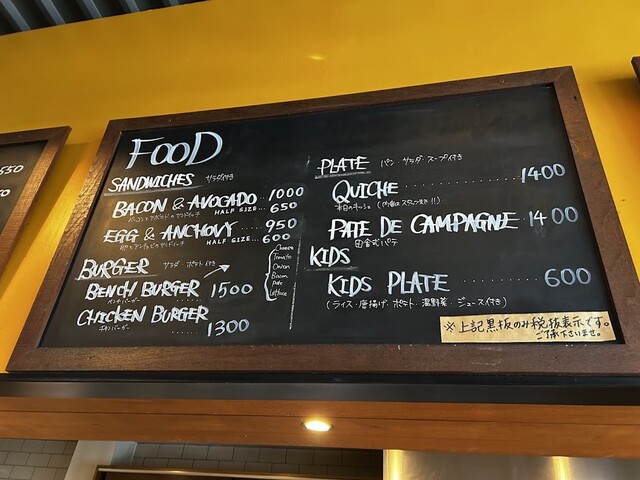 FOOD
SANDWICHES サラダ付き
BACON & AVOCADO ‥ 1000
ベーコンとアボカドのサンドイッチ
HALF SIZE… 650
EGG & ANCHOVY ‥‥ 950
卵とアンチョビのサンドイッチ
HALF SIZE… 600
BURGER サラダ ポテト付き
BENCH BURGER 1500
ベンチバーガー
Cheese
Tomato
Onion
Bacon
Pate
Lettuce
CHICKEN BURGER
チキンバーガー ‥‥‥ 1300
PLATE パン・サラダ・スープ付き
QUICHE ‥‥‥‥‥‥ 1400
本日のキッシュ
PATE DE CAMPAGNE 1400
田舎式パテ
KIDS
KIDS PLATE ‥‥‥‥ 600
(ライス・唐揚げ・ポテト・温野菜・ジュース付き)
※上記黒板のみ税抜表示です。
ご了承下さいませ。
550
50